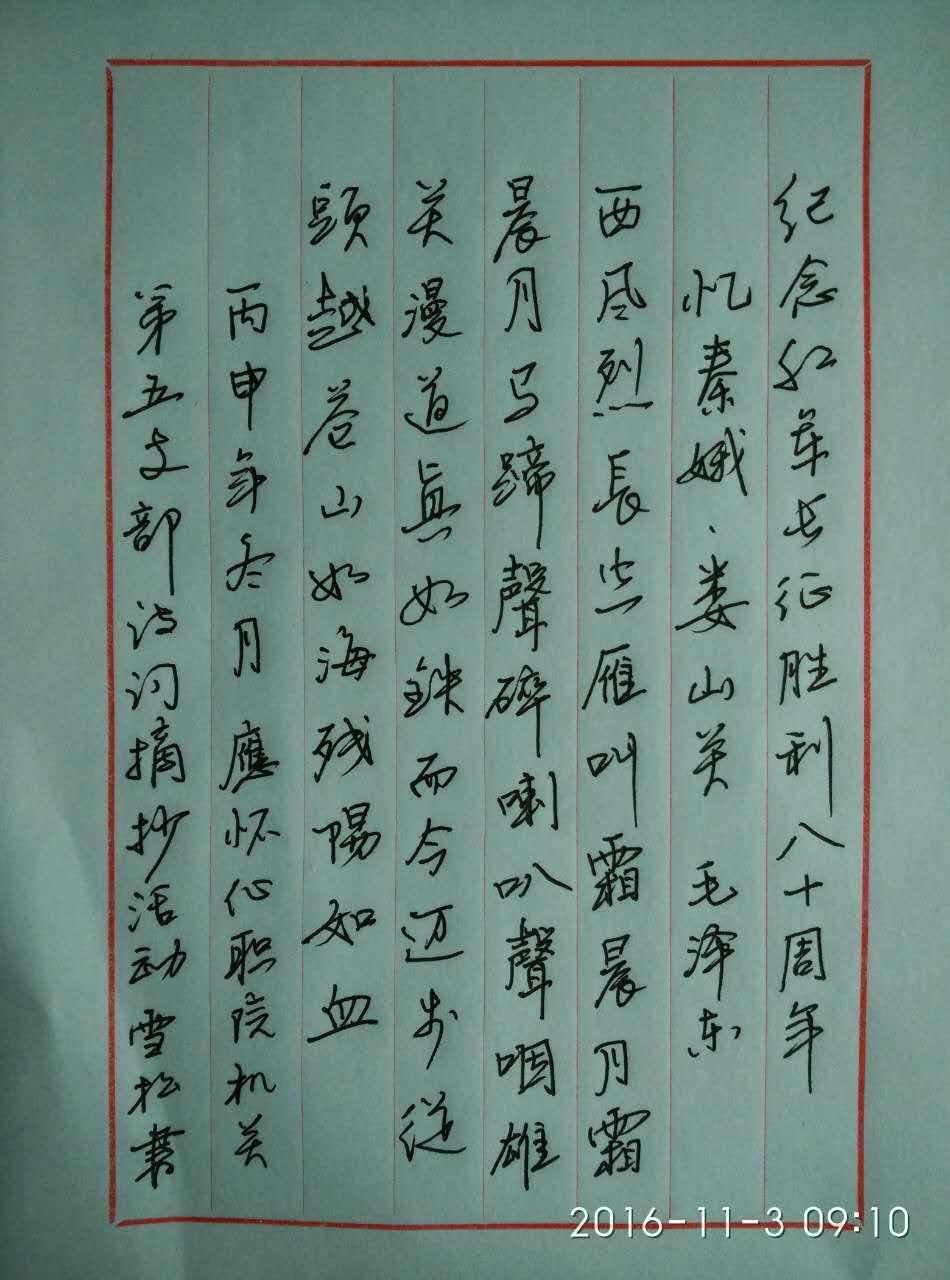 纪念红军长征胜利八十周年
忆秦娥·娄山关 毛泽东
西风烈長空雁叫霜晨月霜
晨月马蹄聲碎喇叭聲咽雄
关漫道真如鉄而今迈步从
頭越苍山如海残陽如血
丙申年冬月應怀化职院机关
第五支部诗词摘抄活动雪松書
2016-11-3 09:10